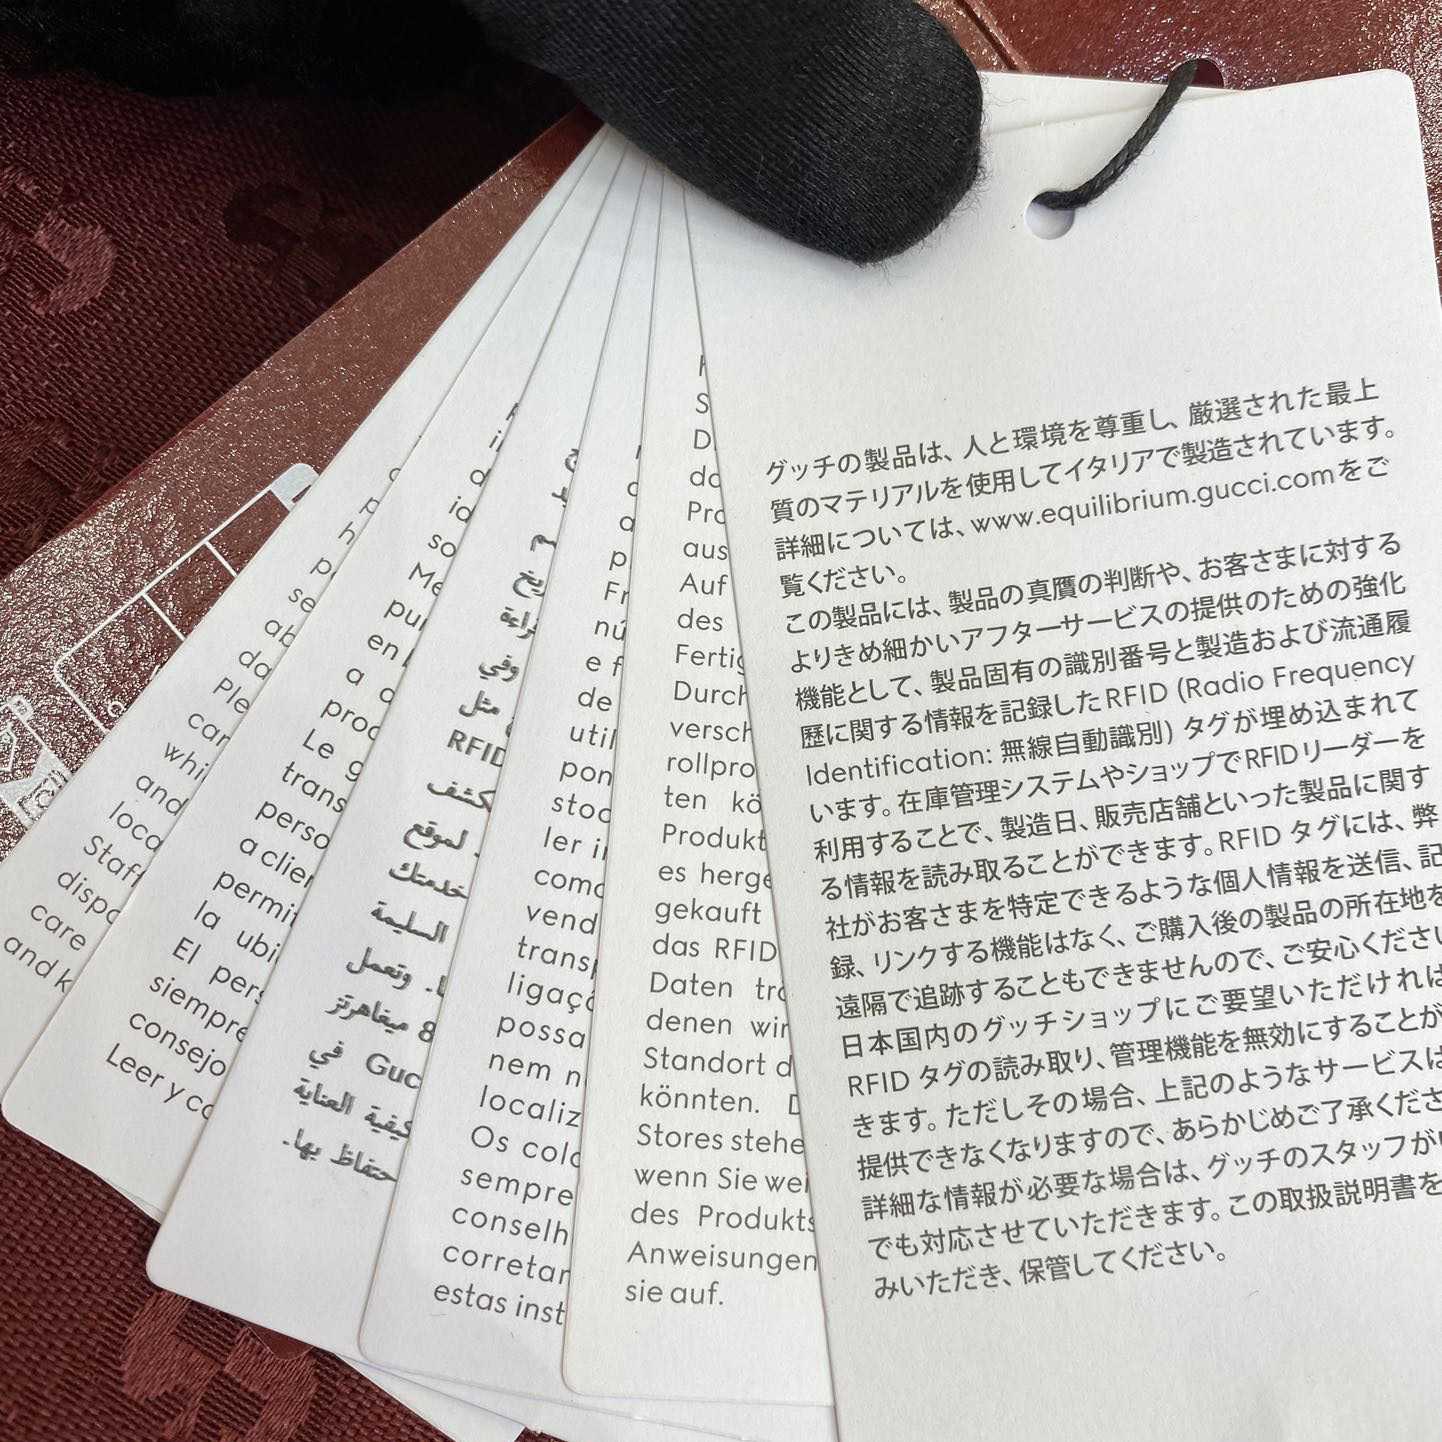 グッチの製品は、人と環境を尊重し、厳選された最上
質のマテリアルを使用してイタリアで製造されています。
詳細については、www.equilibrium.gucci.comをご
覧ください。
この製品には、製品の真贋の判断や、お客さまに対する
よりきめ細かいアフターサービスの提供のための強化
機能として、製品固有の識別番号と製造および流通履
歴に関する情報を記録したRFID (Radio Frequency
Identification: 無線自動識別) タグが埋め込まれて
います。在庫管理システムやショップでRFIDリーダーを
利用することで、製造日、販売店舗といった製品に関す
る情報を読み取ることができます。RFID タグには、弊
社がお客さまを特定できるような個人情報を送信、記
録、リンクする機能はなく、ご購入後の製品の所在地を
遠隔で追跡することもできませんので、ご安心ください
日本国内のグッチショップにご要望いただければ
RFID タグの読み取り、管理機能を無効にすることが
きます。ただしその場合、上記のようなサービスは
提供できなくなりますので、あらかじめご了承くださ
詳細な情報が必要な場合は、グッチのスタッフが
でも対応させていただきます。この取扱説明書を
みいただき、保管してください。
aus
Auf
des
Fertig
Durch
versch
rollpro
ten kö
Produkt
es herge
gekauft
das RFID
Daten tra
denen wir
Standort d
könnten.
Stores stehe
wenn Sie wei
des Produkts
Anweisungen
sie auf.
Fr
nú
e f
de
util
pon
stoc
ler i
como
vend
transp
ligaçã
possa
nem n
localiz
Os cola
sempre
conselh
corretan
estas inst
وفي
مثل
RFID
لموقع
خدمتك
السليمة
وتعمل
8 ميغاهرتز
Guc في
كيفية العناية
حتفاظ بها.
so
Me
pu
en
a
proc
Le g
trans
perso
a clien
permit
la ubi
El pers
siempre
consejo
Leer y co
se
ab
da
Ple
car
whi
and
loca
Staff
dispo
care
and k